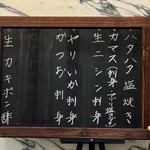 ハタハタ塩焼き
カマス刺身
生ニシン刺身
ヤリいか刺身
かつお刺身
生カキポン酢